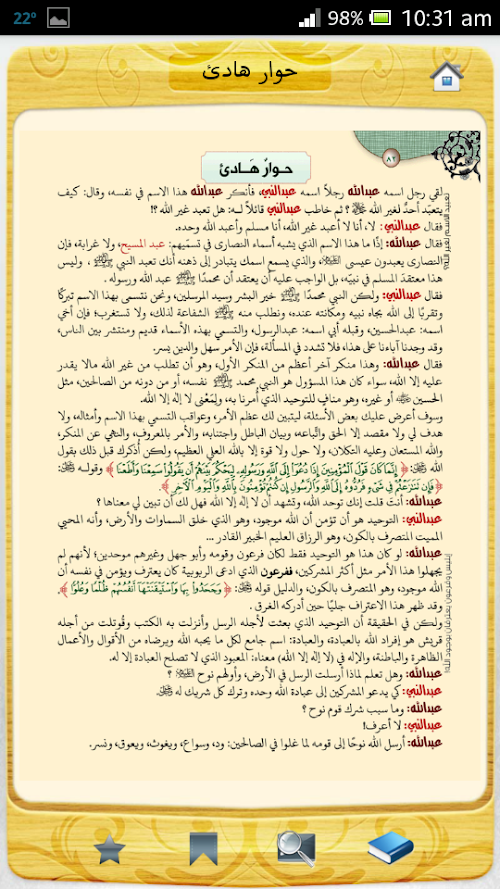 22°
98%
10:31 am
حوار هادئ
٨٢
حـوارٌ هَـادئ
لقي رجل اسمه عبدالله رجلاً اسمه عبدالنبي، فأنكر عبدالله هذا الاسم في نفسه، وقال: كيف
يتعبّد أحدٌ لغير الله ﷻ؟ ثم خاطب عبدالنبي قائلاً لـه: هل تعبد غير الله ؟!
فقال عبدالنبي: لا، أنا لا أعبد غير الله، أنا مسلم وأعبد الله وحده.
فقال عبدالله: إذًا ما هذا الاسم الذي يشبه أسماء النصارى في تسمّيهم: عبد المسيح، ولا غرابة، فإن
النصارى يعبدون عيسى، والذي يسمع اسمك يتبادر إلى ذهنه أنك تعبد النبي ﷺ، وليس
هذا معتقدَ المسلم في نبيّه، بل الواجب عليه أن يعتقد أن محمدًا ﷺ عبد الله ورسوله.
فقال عبدالنبي: ولكن النبي محمدًا ﷺ خير البشر وسيد المرسلين، ونحن نتسمى بهذا الاسم تبركًا
وتقربًا إلى الله بجاه نبيه ومكانته عنده، ونطلب منه ﷺ الشفاعة لذلك، ولا تستغرب؛ فإن أخي
اسمه: عبدالحسين، وقبله أبي اسمه: عبدالرسول، والتسمي بهذه الأسماء قديم ومنتشر بين الناس،
وقد وجدنا آباءنا على هذا، فلا تشدد في المسألة، فإن الأمر سهل والدين يسر.
فقال عبدالله: وهذا منكر آخر أعظم من المنكر الأول، وهو أن تطلب من غير الله مالا يقدر
عليه إلا الله، سواء كان هذا المسؤول هو النبي محمد ﷺ نفسه، أو من دونه من الصالحين، مثل
الحسين أو غيره، وهو منافٍ للتوحيد الذي أُمرنا به، ولِمَعْنى لا إله إلا الله.
وسوف أعرض عليك بعض الأسئلة، ليتبين لك عظم الأمر، وعواقب التسمي بهذا الاسم وأمثاله، ولا
هدف لي ولا مقصد إلا الحق واتّباعه، وبيان الباطل واجتنابه، والأمر بالمعروف، والنهي عن المنكر،
والله المستعان وعليه التكلان، ولا حول ولا قوة إلا بالله العلي العظيم، ولكن أذكرك قبل ذلك بقول
الله ﷻ: ﴿ إِنَّمَا كَانَ قَوْلَ الْمُؤْمِنِينَ إِذَا دُعُوا إِلَى اللَّهِ وَرَسُولِهِ لِيَحْكُمَ بَيْنَهُمْ أَن يَقُولُوا سَمِعْنَا وَأَطَعْنَا ﴾ وقولـه ﷻ:
﴿ فَإِن تَنَازَعْتُمْ فِي شَيْءٍ فَرُدُّوهُ إِلَى اللَّهِ وَالرَّسُولِ إِن كُنتُمْ تُؤْمِنُونَ بِاللَّهِ وَالْيَوْمِ الْآخِرِ ﴾.
عبدالله: أنت قلت إنك توحد الله، وتشهد أن لا إله إلا الله فهل لك أن تبين لي معناها ؟
عبدالنبي: التوحيد هو أن تؤمن أن الله موجود، وهو الذي خلق السماوات والأرض، وأنه المحيي
المميت المتصرف بالكون، وهو الرزاق العليم الخبير القادر ...
عبدالله: لو كان هذا هو التوحيد فقط لكان فرعون وقومه وأبو جهل وغيرهم موحدين؛ لأنهم لم
يجهلوا هذا الأمر مثل أكثر المشركين، ففرعون الذي ادعى الربوبية كان يعترف ويؤمن في نفسه أن
الله موجود، وهو المتصرف بالكون، والدليل قوله ﷻ: ﴿ وَجَحَدُوا بِهَا وَاسْتَيْقَنَتْهَا أَنفُسُهُمْ ظُلْمًا وَعُلُوًّا ﴾.
وقد ظهر هذا الاعتراف جليًا حين أدركه الغرق.
ولكن في الحقيقة أن التوحيد الذي بعثت لأجله الرسل وأنزلت به الكتب وقُوتلت من أجله
قريش هو إفراد الله بالعبادة، والعبادة: اسم جامع لكل ما يحبه الله ويرضاه من الأقوال والأعمال
الظاهرة والباطنة، والإله في (لا إله إلا الله) معناه: المعبود الذي لا تصلح العبادة إلا له.
عبدالله: وهل تعلم لماذا أرسلت الرسل في الأرض، وأولهم نوح ؟
عبدالنبي: كي يدعو المشركين إلى عبادة الله وحده وترك كل شريك له ﷻ.
عبدالله: وما سبب شرك قوم نوح ؟
عبدالنبي: لا أعرف!
عبدالله: أرسل الله نوحًا إلى قومه لما غلوا في الصالحين: ود، وسواع، ويغوث، ويعوق، ونسر.